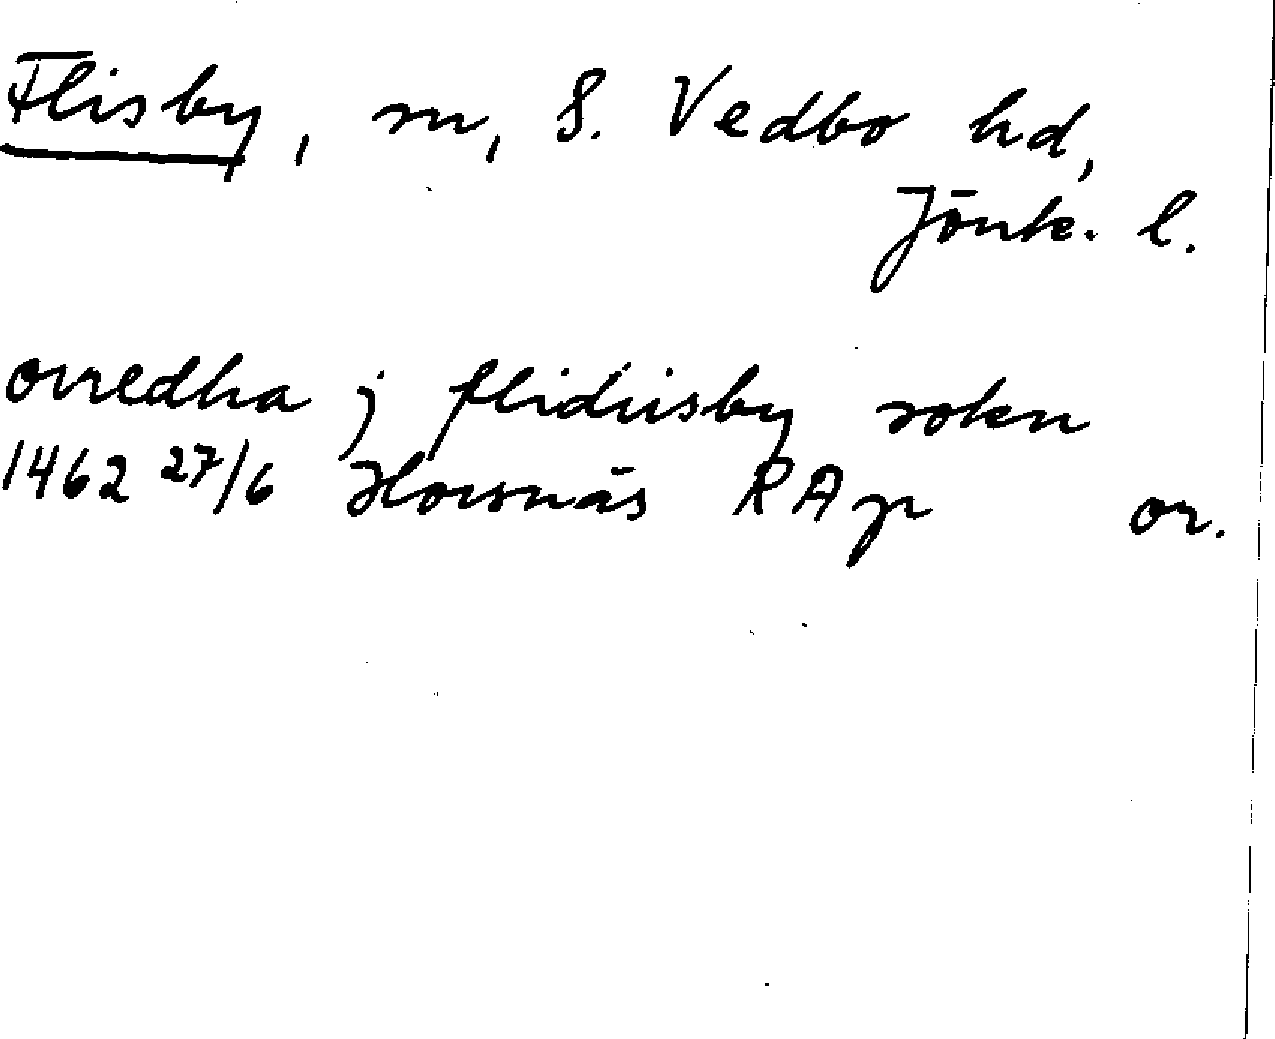 Flisby, sn, S. Vedbo hd,
Jönk. l.
orredha j flidiisby sokn
1462 27/6 Horsnäs RAp or.